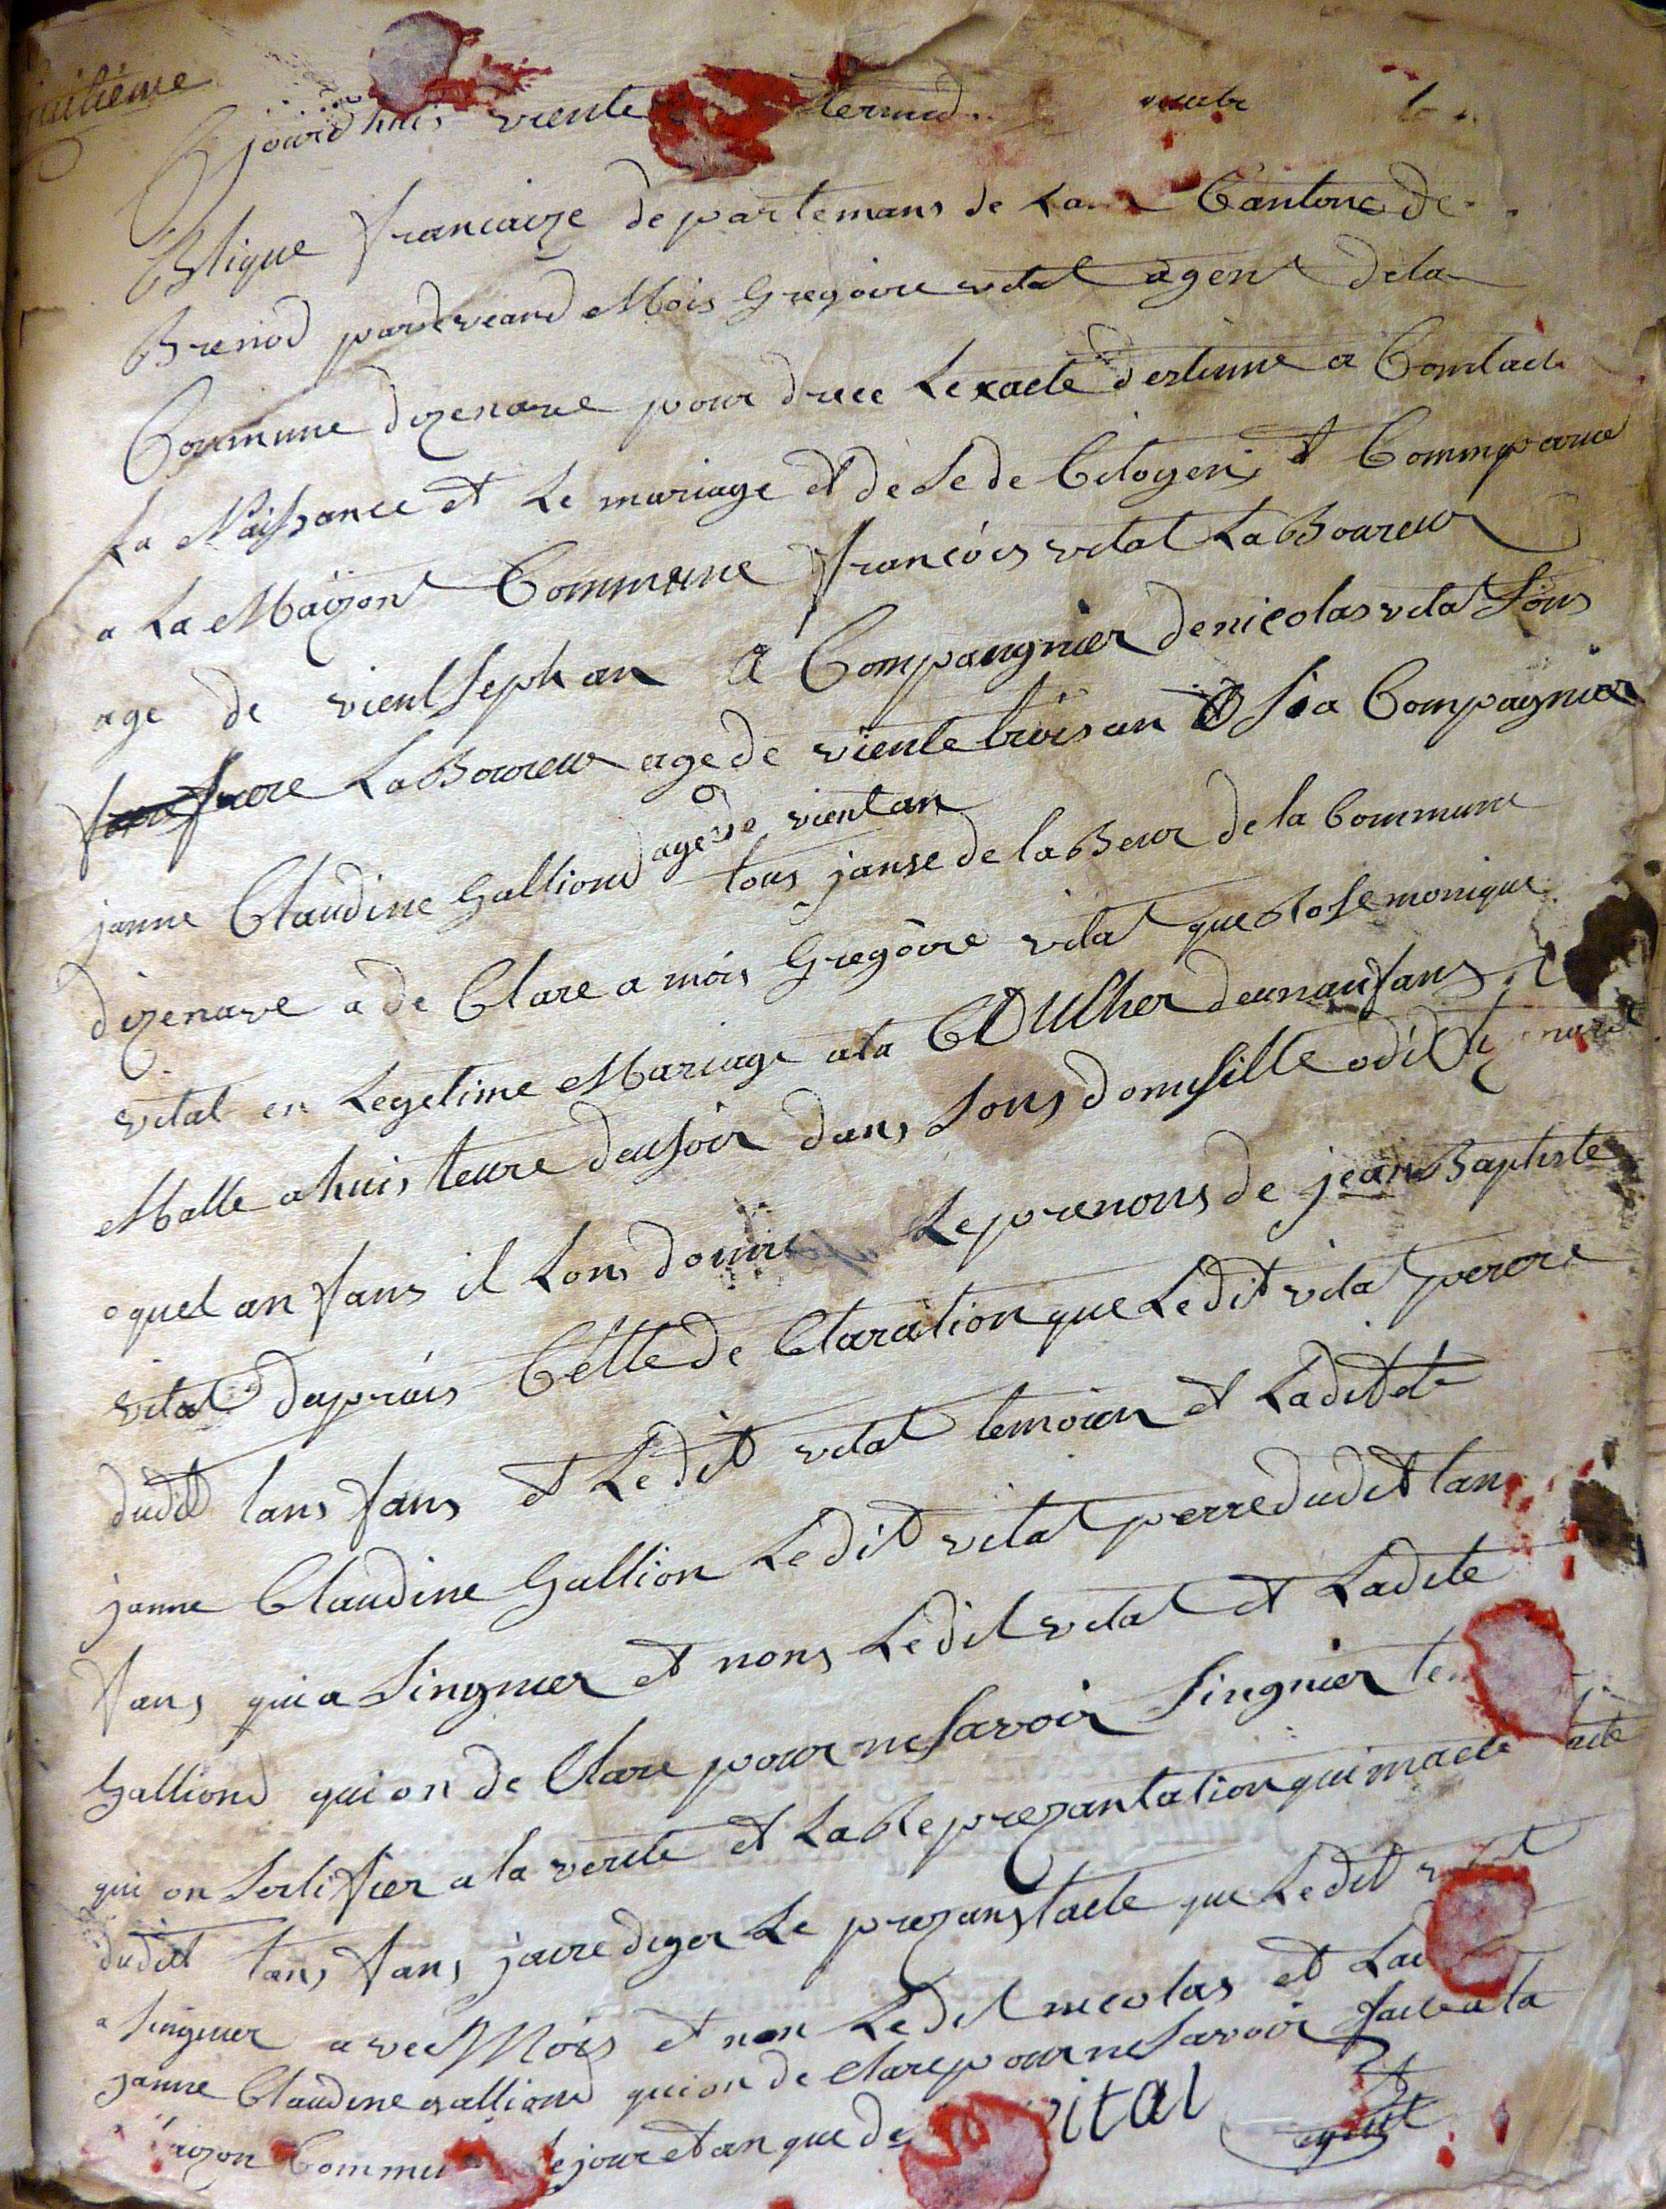 huitieme
jourdhuis viente termid
Blique francaize departemans de Lain Cantone de
Brenod pardeveand Mois Gregoire vital agent dela
Commune dizenave pour druce Lexacte destinne a Contade
La Naissance et Le mariage et de Sede Citoyens et Commparue
a La Maizont Commune francois vital LaBoureur
age de vient Seph an a Compaugnier de nicolas vital Sons
frere LaBoureur age de viente trois an et sa Compagnier
janne Claudine Galliond age de vient an tous janse de la Beur de la Commune
dizenave a de Clare a mois Gregoire vital que Rose monique
vital en Legetime Mariage ata aculher deunanfans
Malle a huis teure deusoir dans Sons domisille odit izenave
oquel anfans il Lons donne Leprenons de jean Baptiste
vital daprais Cette de Claration que Ledit vital perere
dudit lans fans et Ledit vital temoien et Laditete
janne Claudine Gallion Ledit vital perre dudit lan
fans quia Singnier et nons Ledit vital et Ladite
Galliond quion de Clare pour ne Savoir Singnier
qui on Sertifier a la verite et La Reprezantation qui macte
dudit lans fans jaire diger Le prezanstacte que Ledit vital
a Singnier avec Mois et non Ledit nicolas et Lad
janne Claudine galliond quion de Clare pour ne Savoir fait a la
Commu Lejour et an que de vital
agent